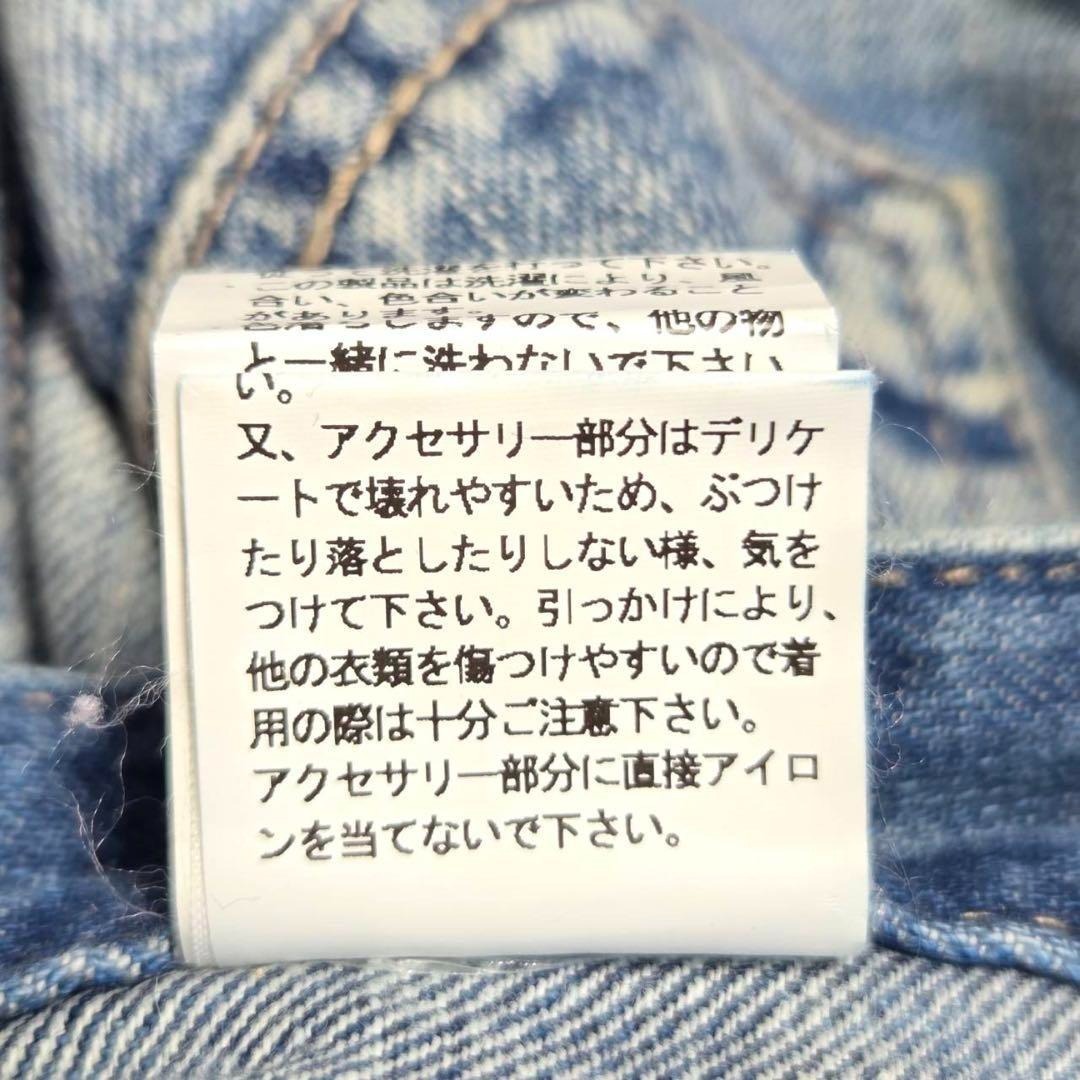 洗濯を行って下さい。
この製品は洗濯により、風
合い、色合いが変わること
があります。
色落ちしますので、他の物
と一緒に洗わないで下さい
い。
又、アクセサリー部分はデリケ
ートで壊れやすいため、ぶつけ
たり落としたりしない様、気を
つけて下さい。引っかけにより、
他の衣類を傷つけやすいので着
用の際は十分ご注意下さい。
アクセサリー部分に直接アイロ
ンを当てないで下さい。